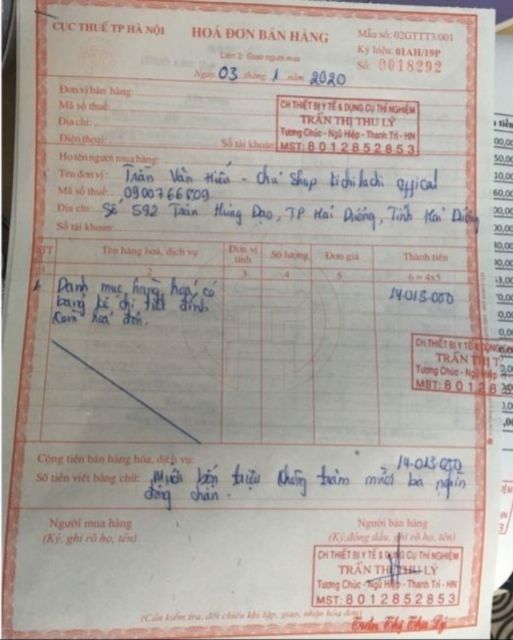 CỤC THUẾ TP HÀ NỘI
HOÁ ĐƠN BÁN HÀNG
Mẫu số: 02GTTT3/001
Ký hiệu: 01AH/19P
Liên 2: Giao người mua
Số: 0018292
Ngày 03 tháng 1 năm 2020
Đơn vị bán hàng:
Mã số thuế:
Địa chỉ:
Điện thoại: Số tài khoản
CH THIẾT BỊ Y TẾ & DỤNG CỤ THÍ NGHIỆM
TRẦN THỊ THƯ LÝ
Tương Chúc - Ngũ Hiệp - Thanh Trì - HN
MST: 8012852853
Họ tên người mua hàng:
Tên đơn vị: Trần Văn Hiến - Chủ shop kichilachi
Mã số thuế: 0900766809
Địa chỉ: Số 592 Trần Hưng Đạo, TP Hải Dương, Tỉnh Hải Dương
Số tài khoản:
STT Tên hàng hoá, dịch vụ Đơn vị tính Số lượng Đơn giá Thành tiền
1 2 3 4 5 6 = 4x5
1 Danh mục hàng hoá có 14.013.000
bảng kê chi tiết đính
kèm hoá đơn.
CH THIẾT BỊ Y TẾ & DỤNG
TRẦN THỊ T
Tương Chúc - Ngũ Hiệp
MST: 80128
Cộng tiền bán hàng hóa, dịch vụ: 14.013.000
Số tiền viết bằng chữ: Mười bốn triệu không trăm mười ba nghìn
đồng chẵn.
Người mua hàng
(Ký, ghi rõ họ, tên)
Người bán hàng
(Ký, đóng dấu, ghi rõ họ, tên)
CH THIẾT BỊ Y TẾ & DỤNG CỤ THÍ NGHIỆM
TRẦN THỊ THƯ LÝ
Tương Chúc - Ngũ Hiệp - Thanh Trì - HN
MST: 8012852853
(Cần kiểm tra, đối chiếu khi lập, giao, nhận hóa đơn)
Trần Thị Thư Lý